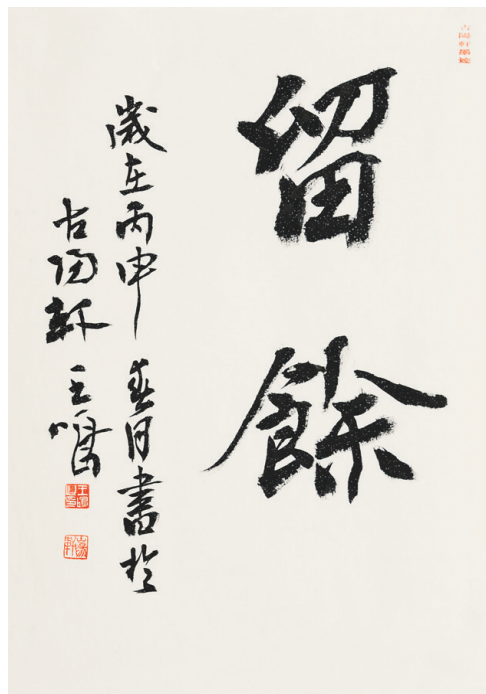 留餘
歲在丙申春月書於
古陶軒王鳴